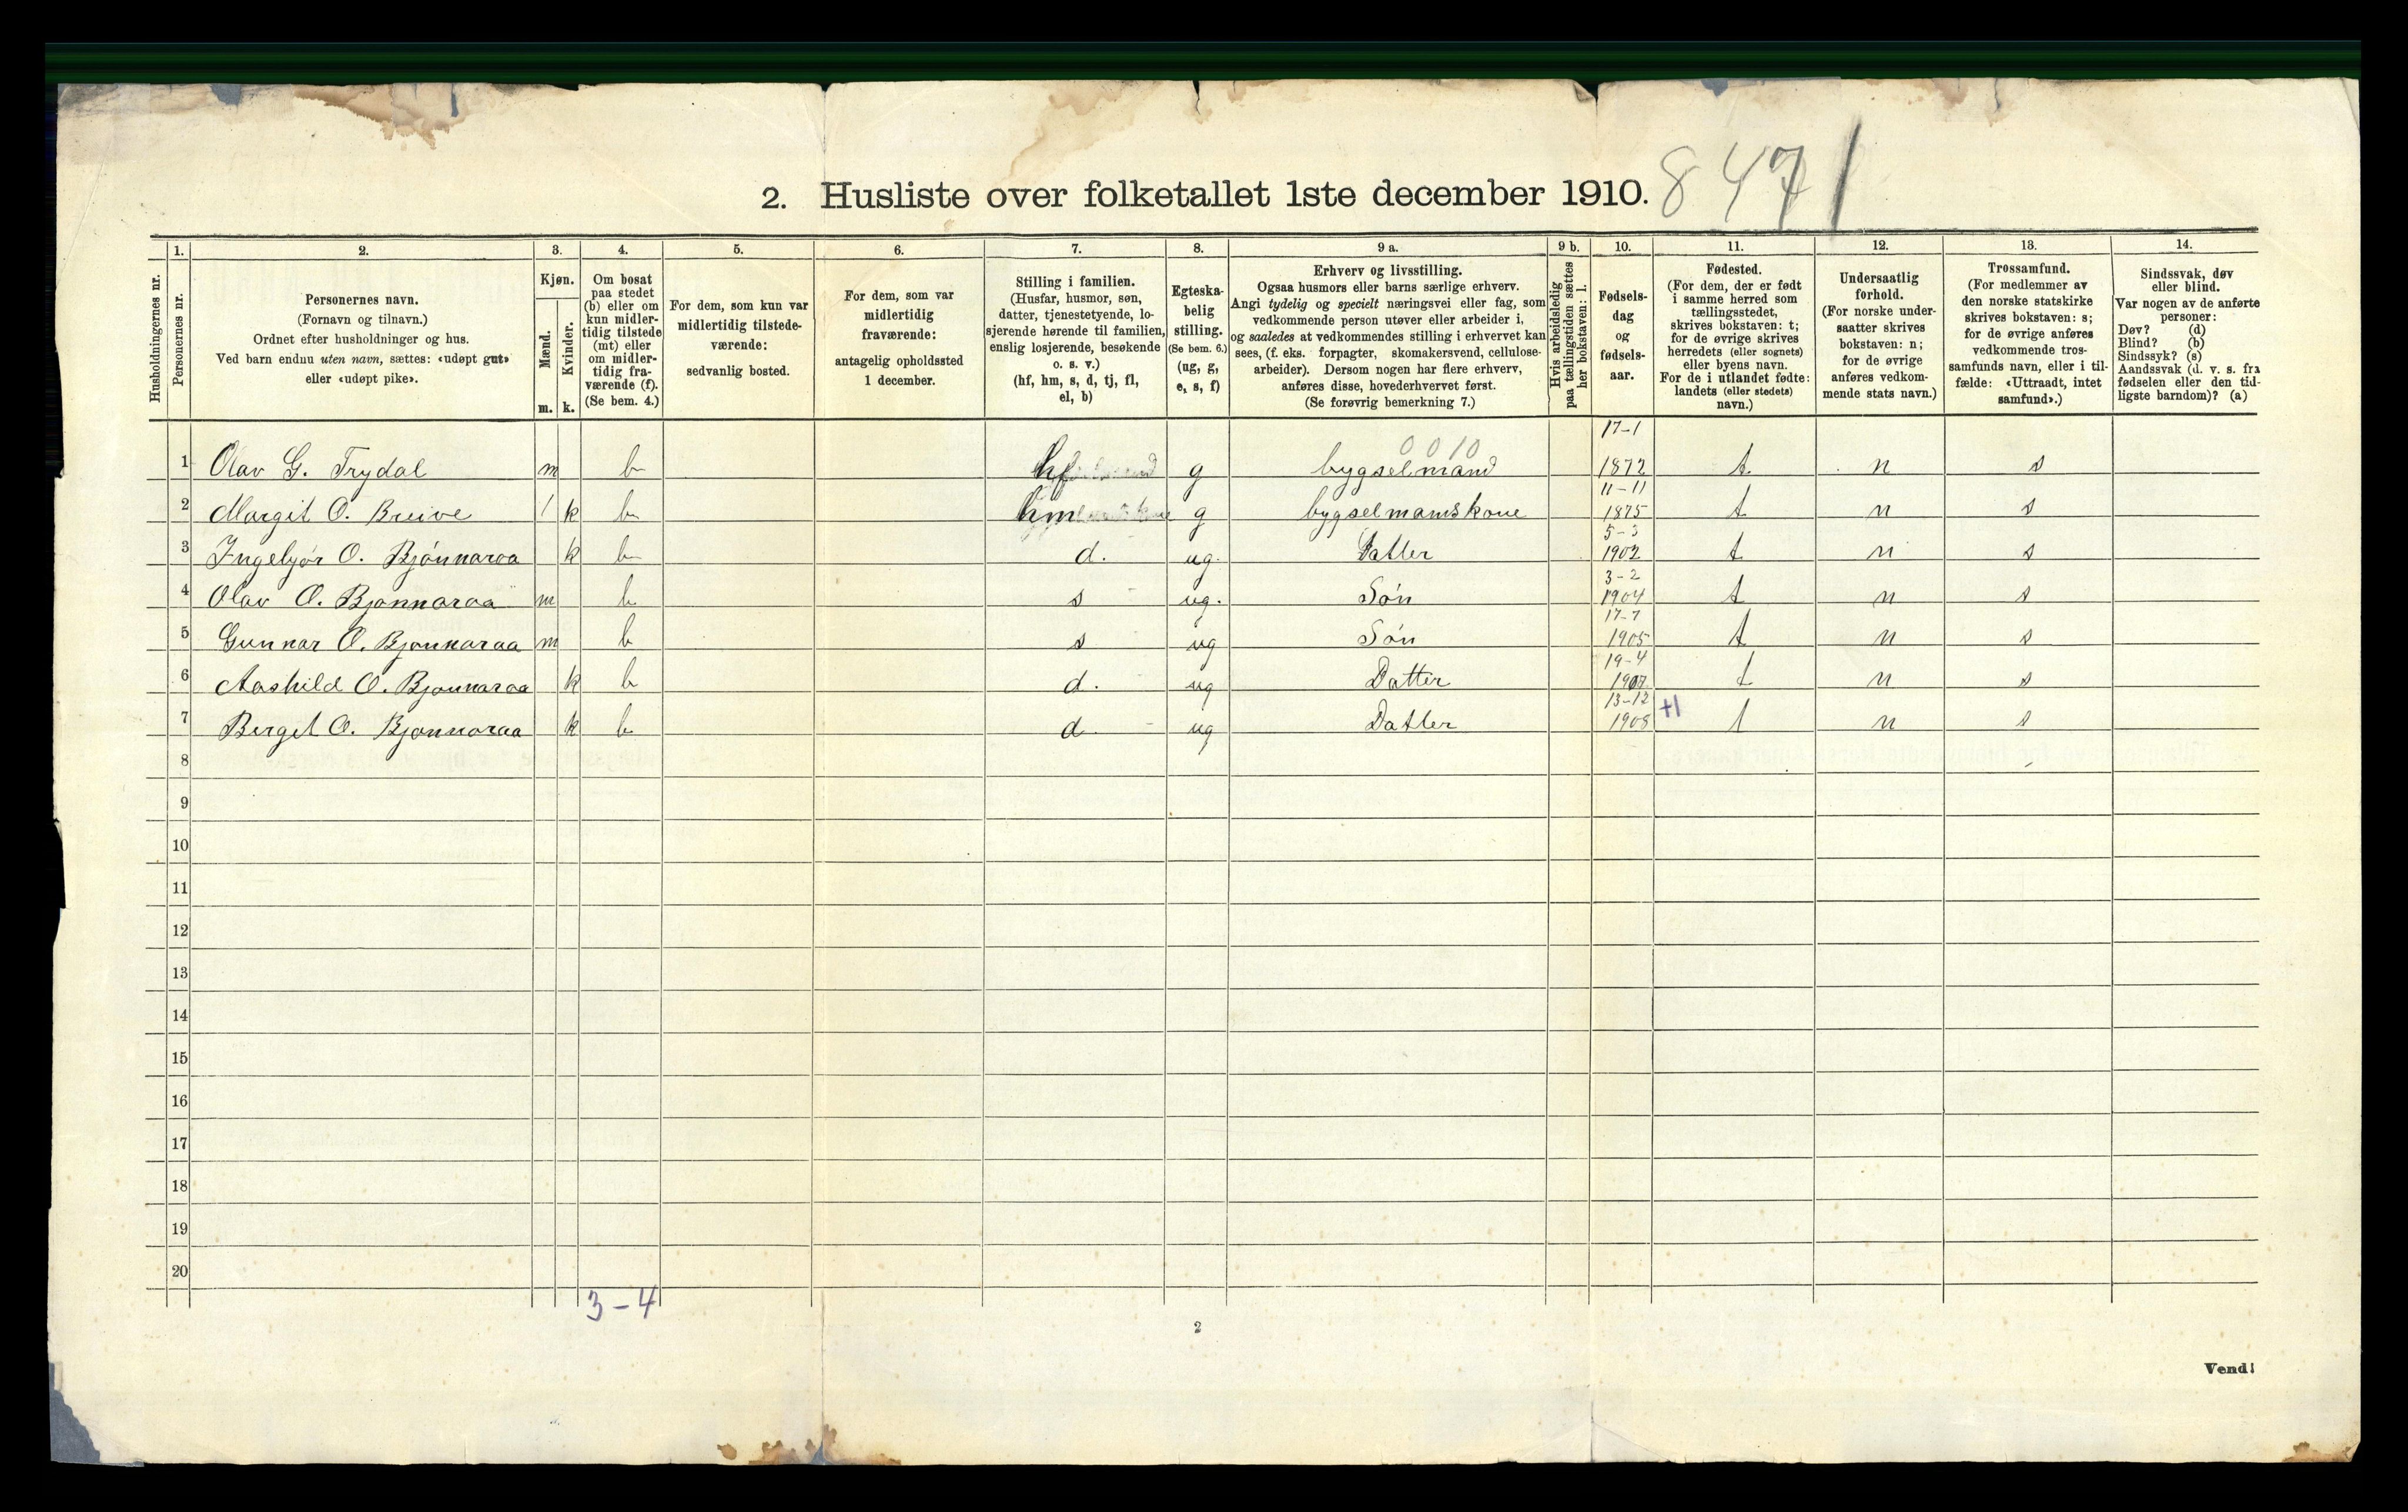 2. Husliste over folketallet 1ste december 1910. 8471
Husholdningernes nr.
1.
Personernes nr.
2.
Personernes navn.
(Fornavn og tilnavn.)
Ordnet efter husholdninger og hus.
Ved barn endnu uten navn, sættes: «udøpt gut»
eller «udøpt pike».
3.
Kjøn.
Mænd.
m.
Kvinder.
k.
4.
Om bosat
paa stedet
(b) eller om
kun midler-
tidig tilstede
(mt) eller
om midler-
tidig fra-
værende (f).
(Se bem. 4.)
5.
For dem, som kun var
midlertidig tilstede-
værende:
sedvanlig bosted.
6.
For dem, som var
midlertidig
fraværende:
antagelig opholdssted
1 december.
7.
Stilling i familien.
(Husfar, husmor, søn,
datter, tjenestetyende, lo-
sjerende hørende til familien,
enslig losjerende, besøkende
o. s. v.)
(hf, hm, s, d, tj, fl,
el, b)
8.
Egteska-
belig
stilling.
(Se bem. 6.)
(ug, g,
e, s, f)
9 a.
Erhverv og livsstilling.
Ogsaa husmors eller barns særlige erhverv.
Angi tydelig og specielt næringsvei eller fag, som
vedkommende person utøver eller arbeider i,
og saaledes at vedkommendes stilling i erhvervet kan
sees, (f. eks. forpagter, skomakersvend, cellulose-
arbeider). Dersom nogen har flere erhverv,
anføres disse, hovederhvervet først.
(Se forøvrig bemerkning 7.)
9 b.
Hvis arbeidsledig
paa tællingstiden sættes
her bokstaven: l.
10.
Fødsels-
dag
og
fødsels-
aar.
11.
Fødested.
(For dem, der er født
i samme herred som
tællingsstedet,
skrives bokstaven: t;
for de øvrige skrives
herredets (eller sognets)
eller byens navn.
For de i utlandet fødte:
landets (eller stedets)
navn.)
12.
Undersaatlig
forhold.
(For norske under-
saatter skrives
bokstaven: n;
for de øvrige
anføres vedkom-
mende stats navn.)
13.
Trossamfund.
(For medlemmer av
den norske statskirke
skrives bokstaven: s;
for de øvrige anføres
vedkommende tros-
samfunds navn, eller i til-
fælde: «Uttraadt, intet
samfund».)
14.
Sindssvak, døv
eller blind.
Var nogen av de anførte
personer:
Døv? (d)
Blind? (b)
Sindssyk? (s)
Aandssvak (d. v. s. fra
fødselen eller den tid-
ligste barndom)? (a)
0 0 10 17-1
1 Olav G. Trydal m b hf g bygselmand 1872 t. n s
11-11
2 Margit O. Breive k b hm g bygselmanskone 1875 t n s
5-3
3 Ingebjør O. Bjónnaraa k b d. ug. Datter 1902 t n s
3-2
4 Olav O. Bjonnaraa m b s ug. Søn 1904 t n s
17-7
5 Gunnar O. Bjonnaraa m b s ug Søn 1905 t n s
19-4
6 Aashild O. Bjonnaraa k b d. ug Datter 1907 t n s
13-12 +1
7 Berget O. Bjonnaraa k b d ug Datter 1908 t n s
8
9
10
11
12
13
14
15
16
17
18
19
20
3-4
2
Vend!